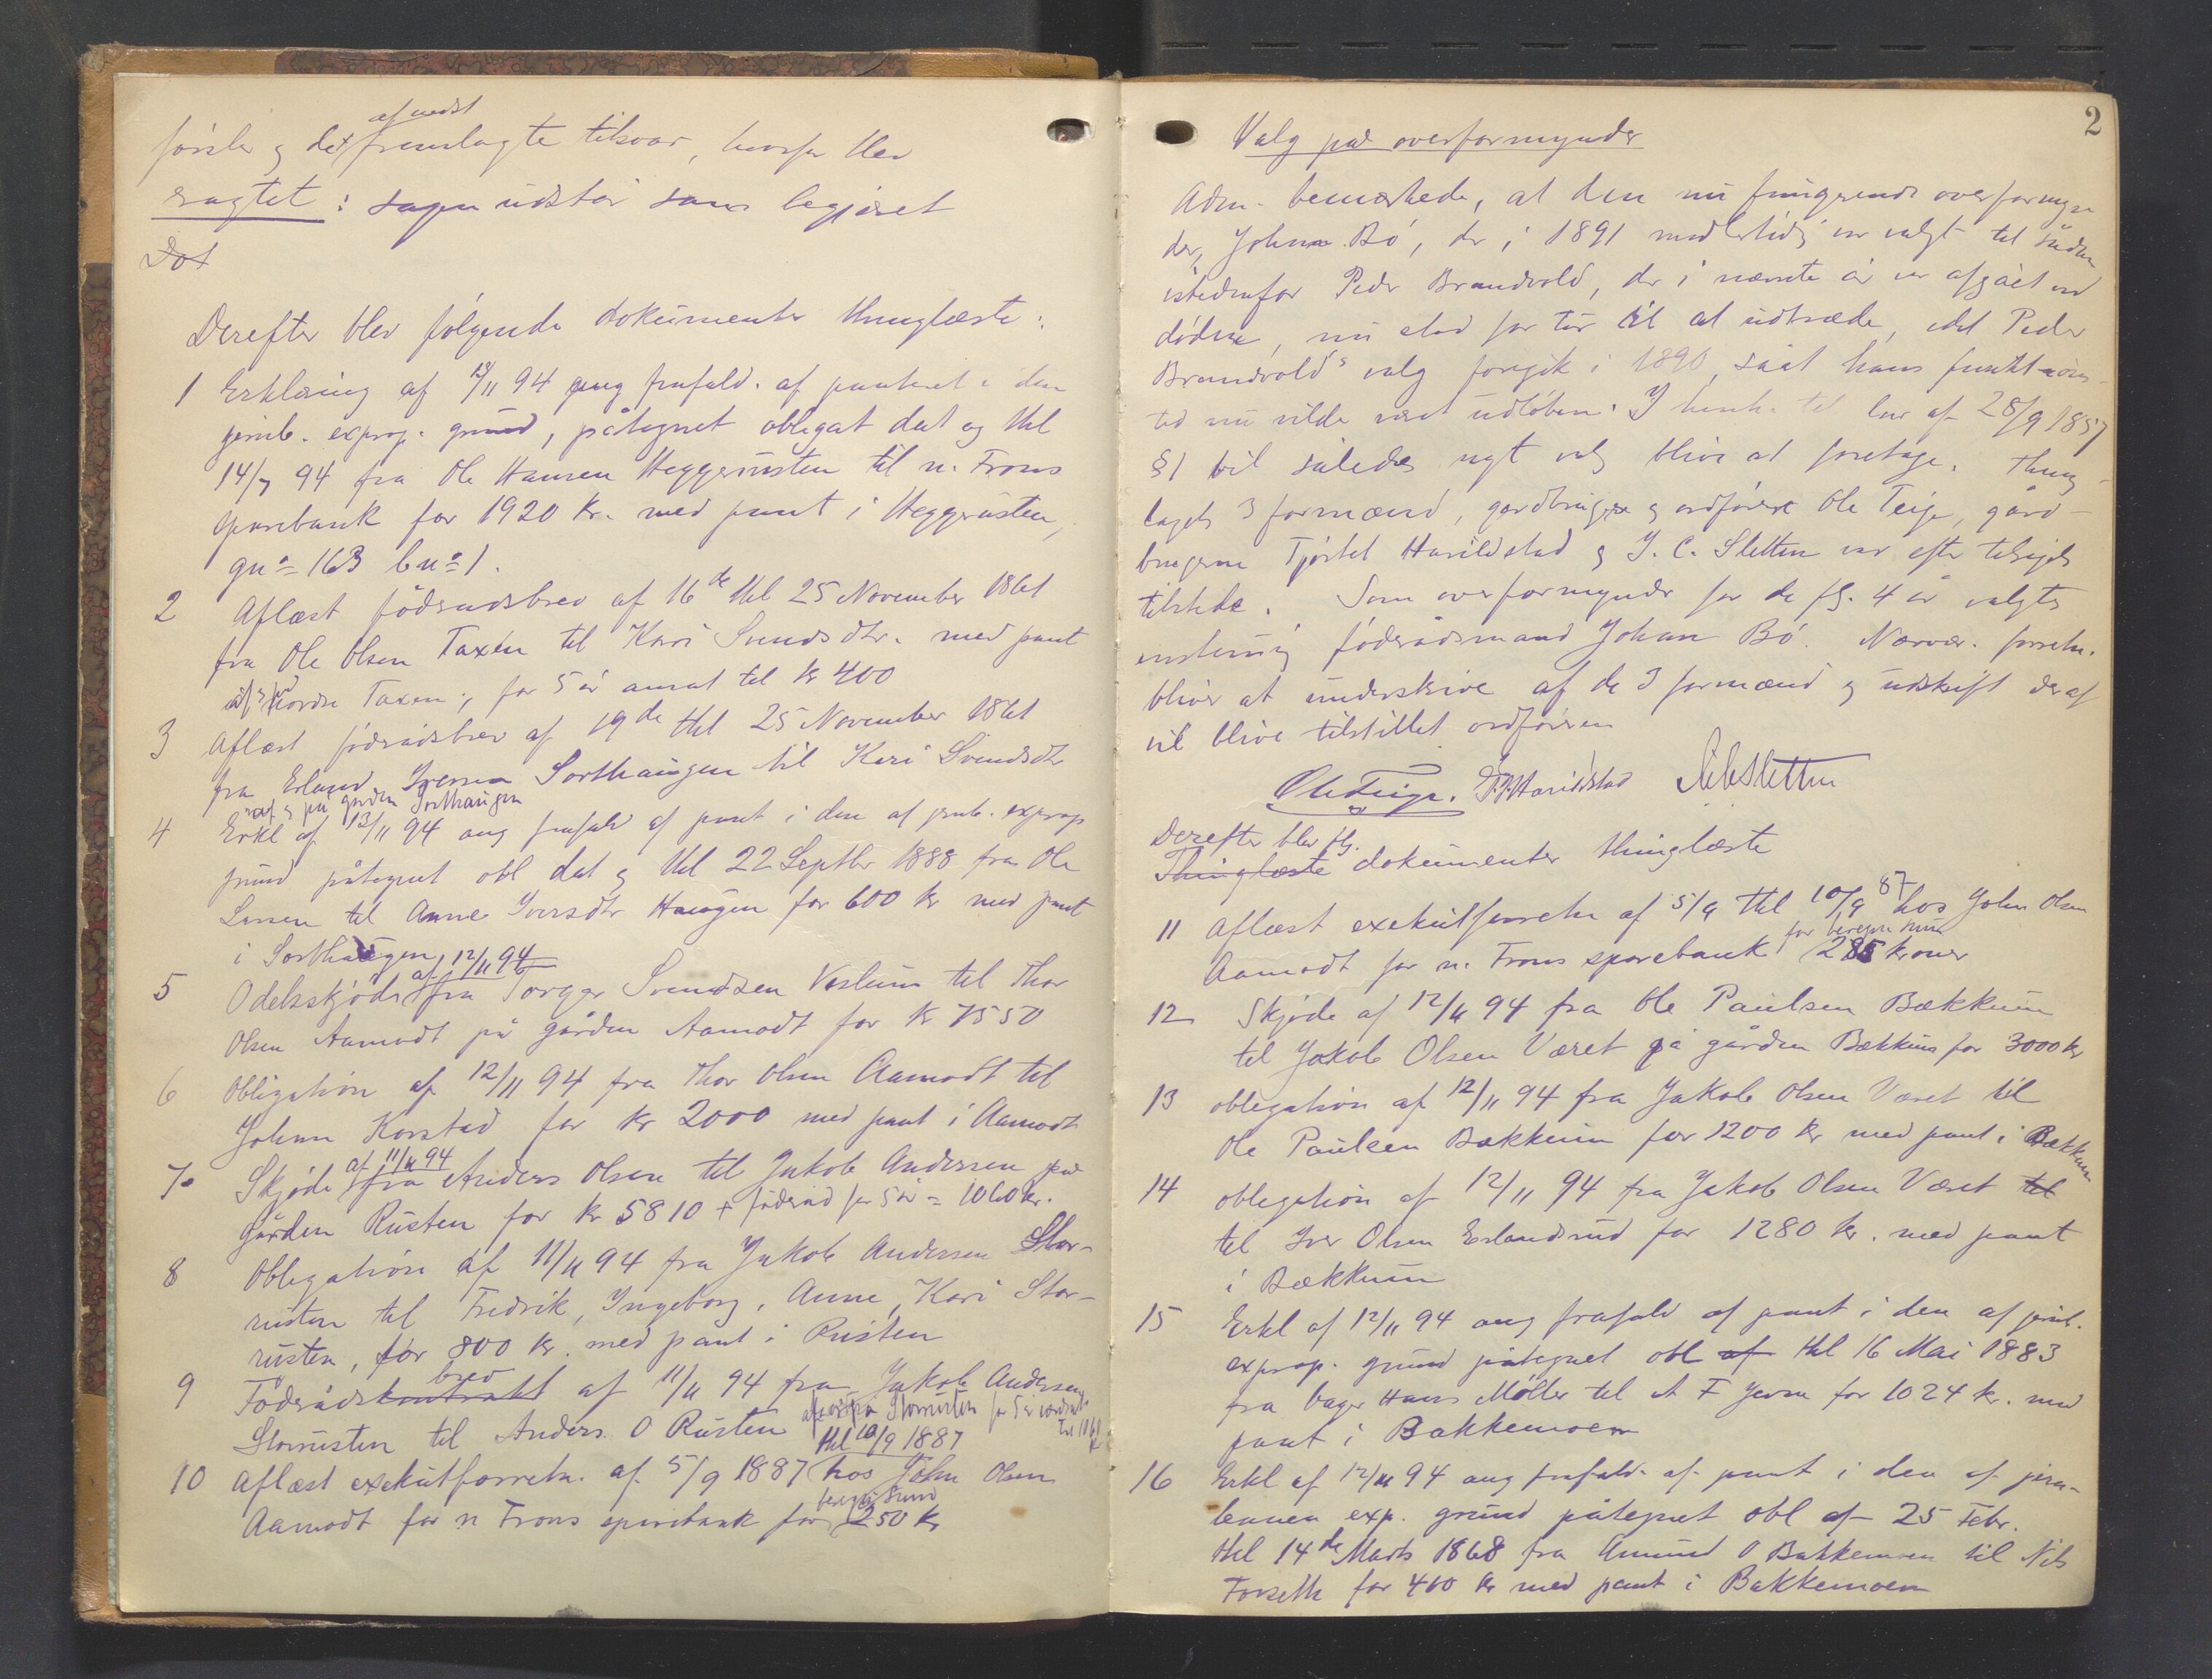 af nedst
førsler og det fremlagte tilsvar, hvorfor blev
ragtet: sagen udstår som begjæret
Dot
Derefter blev følgende dokumenter thinglæste:
1 Erklæring af 13/11 94 ang frafald. af panteret i den
jernb. exprop. grund, påtegnet obligat dat og thl
14/7 94 fra Ole Hansen Heggerusten til n. Frons
sparebank for 1920 kr. med pant i Heggerusten,
gno 163 bno 1.
2 Aflæst föderaadsbrev af 16de thl 25 November 1861
fra Ole Olsen Taxen til Kari Svendsdtr. med pant
af nordre Taxen, for 5 år ansat til kr 400
3 Aflæst föderådsbrev af 19de thl 25 November 1861
fra Erland Iversen Sorthaugen til Kari Svendsdtr
af og på gården Sorthaugen
4 Erkl af 13/11 94 ang frafald af pant i den af jernb. exprop
grund påtegnet obl dat og thl 22 Septbr 1888 fra Ole
Larsen til Anne Iversdtr Haugen for 600 kr med pant
i Sorthaugen
af 12/11 94
5 Odelsskjøde fra Torger Svendsen Veslum til Thor
Olsen Aamodt på gården Aamodt for kr 7550
6 Obligation af 12/11 94 fra Thor Olsen Aamodt til
Johan Korstad for kr 2000 med pant i Aamodt
af 11/11 94
7. Skjøde fra Anders Olsen til Jakob Andersen på
gården Rusten for kr 5810 + föderåd for 5 år = 1060 kr.
8 Obligation af 11/11 94 fra Jakob Andersen Stor-
rusten til Fredrik, Ingeborg, Anne, Kari Stor-
rusten, for 800 kr. med pant i Rusten
brev
9 Föderådskontrakt af 11/11 94 fra Jakob Andersen
Storrusten til Anders O Rusten af og på Storrusten for 5 år
thl 10/9 1887
10 Aflæst exekutforretn. af 5/9 1887 hos John Olsen
beregn. Sum
Aamodt for n Frons sparebank for 250 kr
2
Valg på overformynder
Adm. bemærkede, at den nu fungerende overformyn
der, Johan Bø, der i 1891 midlertidig var valgt til sådan
istedenfor Peder Brandvold, der i nævnte år var afgået ved
døden, nu stod for tur til at udtræde, idet Peder
Brandvold's valg foregik i 1890, såat hans funktions-
tid nu vilde været udløben. I henh. til lov af 28/9 1857
§1 vil således nyt valg blive at foretage. Thing-
lagets 3 formænd, gardbruger og ordfører Ole Teige, gård-
brugerne Tjøstel Harildstad og J. C. Sletten var efter tilsigelse
tilstede. Som overformynder for de flg. 4 år valgtes
enstemig föderådsmand Johan Bø. Nærvær. forretn.
bliver at underskrive af de 3 formænd og udskrift deraf
vil blive tilstillet ordføreren
Ole Teige. T. Harildstad J C Sletten
Derefter blev flg.
Thinglæste dokumenter thinglæste
11 Aflæst exekutforretn af 5/9 thl 10/9 87 hos John Olsen
for beregn sum
Aamodt for n. Frons sparebank 285 kroner
12 Skjøde af 12/11 94 fra Ole Paulsen Bækkum
til Jakob Olsen Været på gården Bækkum for 3000 kr
13 obligation af 12/11 94 fra Jakob Olsen Været til
Ole Paulsen Bækkum for 1200 kr med pant i Bækkum
14 obligation af 12/11 94 fra Jakob Olsen Været til
til Iver Olsen Erlandsrud for 1280 kr. med pant
i Bækkum
15 Erkl af 12/11 94 ang frafald af pant i den af jernb.
exprop. grund påtegnet obl af thl 16 Mai 1883
fra bager Hans Møller til A F for 1024 kr. med
pant i Bakkemoen
16 Erkl af 12/11 94 ang frafald. af pant i den af jern-
banen exp. grund påtegnet obl af 25 Febr.
thl 14de Marts 1868 fra Amund O Bakkemoen til Nils
Forseth for 400 kr med pant i Bakkemoen